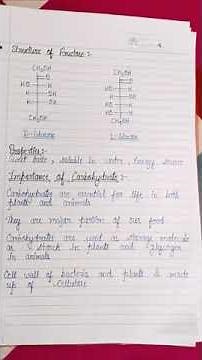 Structure of Fructose :-
CH₂OH CH₂OH
O O
HO H H
H OH HO
H OH HO
CH₂OH CH₂OH
D-
L-
Properties :-
Sweet taste, soluble in water, Energy source
Importance of Carbohydrates :-
Carbohydrates are essential for life in both
plants and animals
They are major portion of our food
Carbohydrates are used as storage molecules
as starch in plants and glycogen
in animals
Cell wall of bacteria and plants is made
up of Cellulose